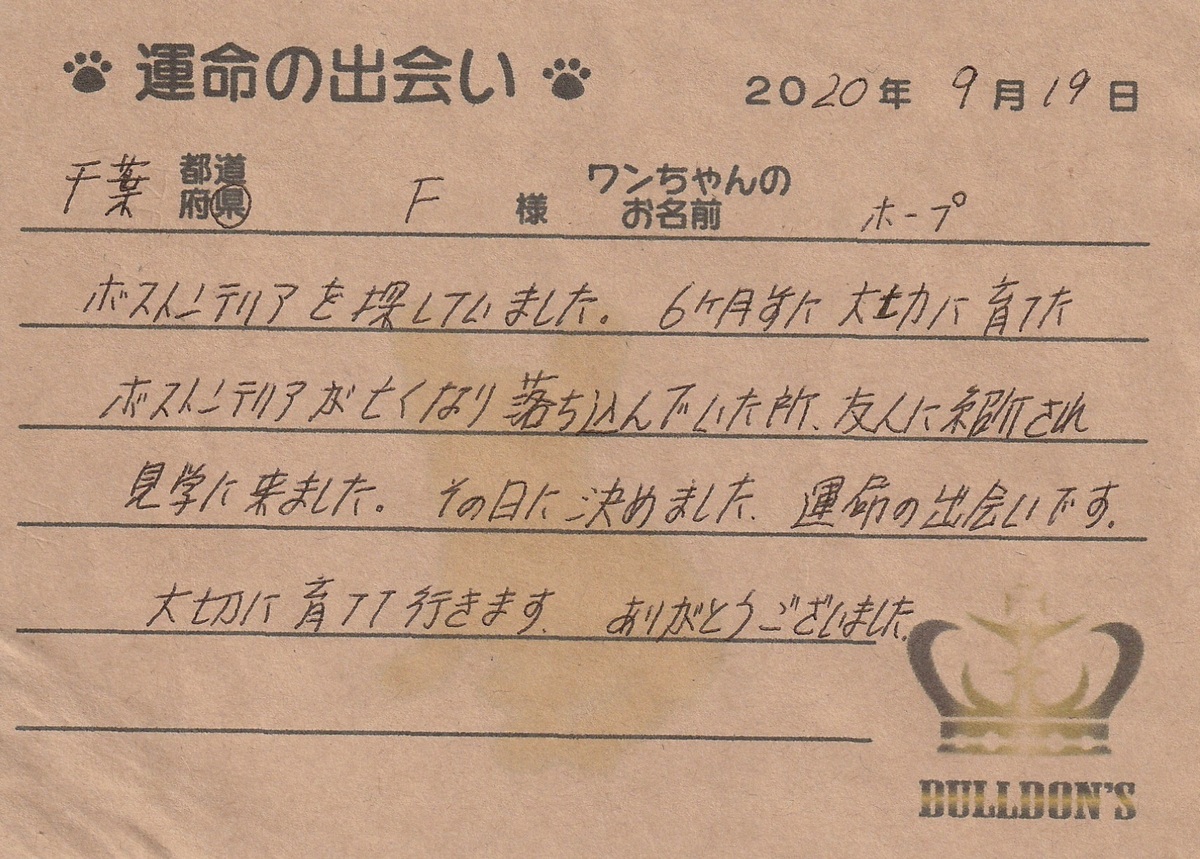 運命の出会い
2020年 9月19日
千葉 都道府県 F 様 ワンちゃんのお名前 ホープ
ボストンテリアを探していました。 6ヶ月前に大切に育てた
ボストンテリアが亡くなり落ち込んでいた所、友人に紹介され
見学に来ました。その日に決めました、運命の出会いです。
大切に育てて行きます、ありがとうございました。
BULLDON'S